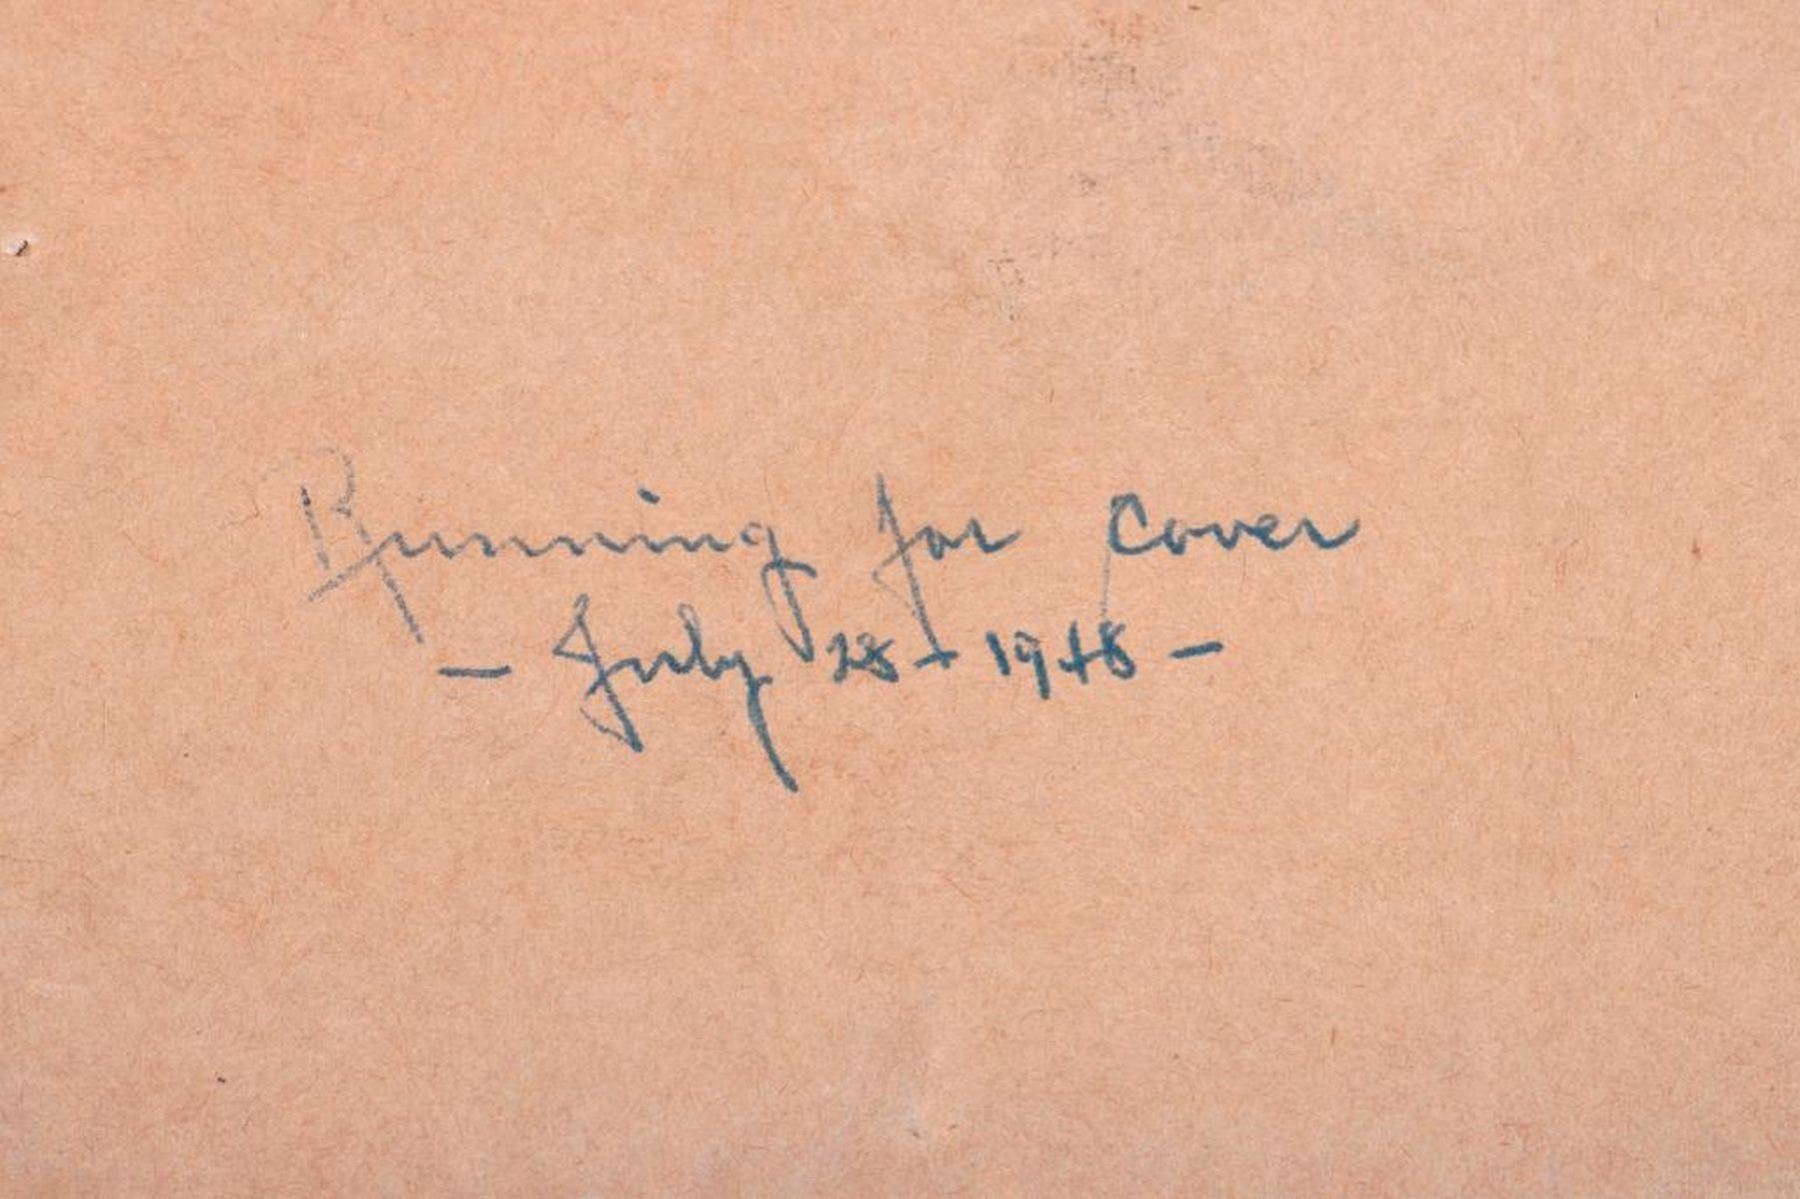 Running for cover
- July 28 - 1948 -